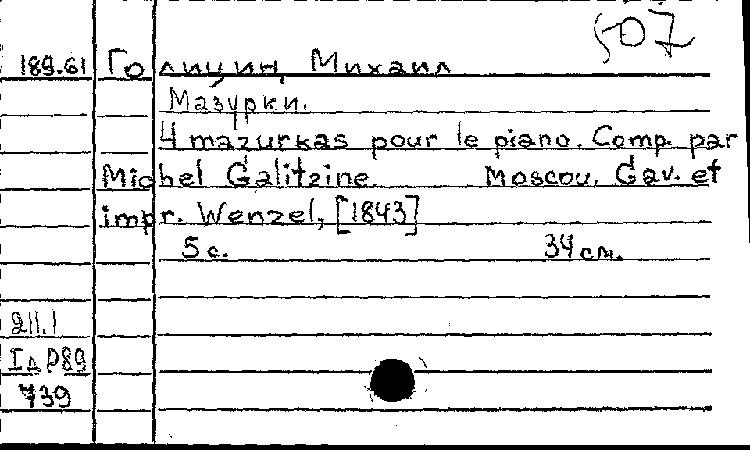 507
189.61 Голицин, Михаил
Мазурки.
4 mazurkas pour le piano. Comp. par
Michel Galitzine. Moscou, Gav. et
impr. Wenzel, [1843]
5 с. 34 см.
211.1
Iд P89
739